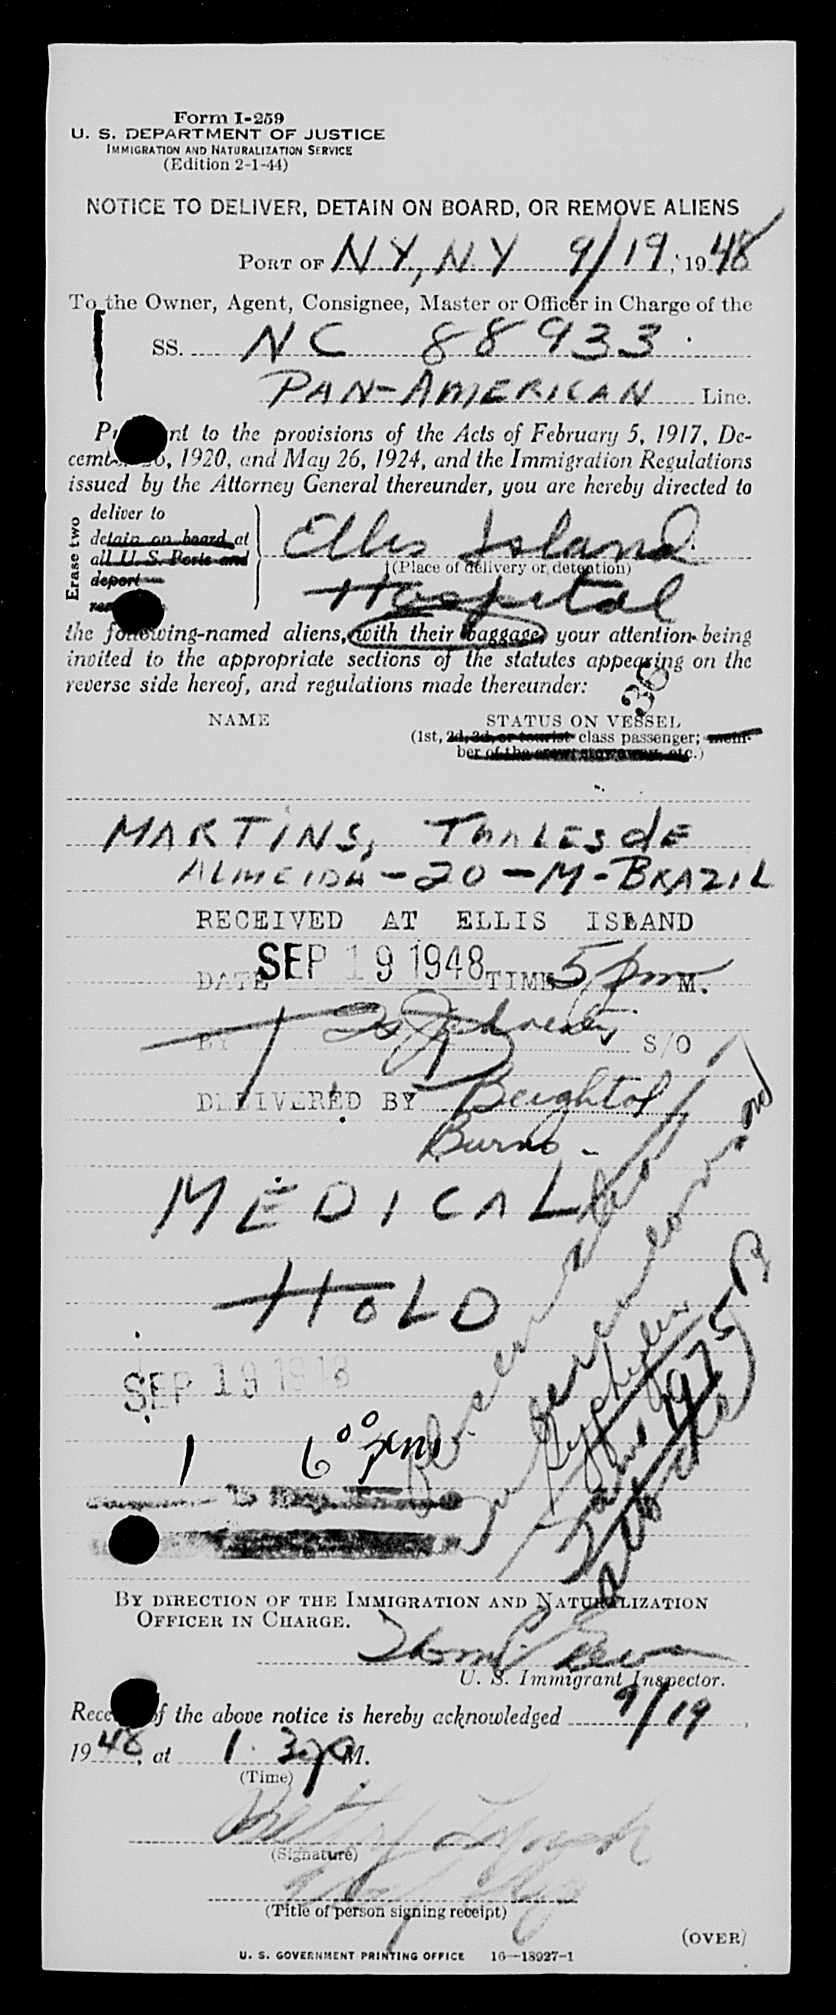 Form I-259
U. S. DEPARTMENT OF JUSTICE
IMMIGRATION AND NATURALIZATION SERVICE
(Edition 2-1-44)
NOTICE TO DELIVER, DETAIN ON BOARD, OR REMOVE ALIENS
PORT OF NY, NY 9/19, 1948
To the Owner, Agent, Consignee, Master or Officer in Charge of the
SS. NC 88933
PAN-AMERICAN Line.
nt to the provisions of the Acts of February 5, 1917, De-
1920, and May 26, 1924, and the Immigration Regulations
issued by the Attorney General thereunder, you are hereby directed to
Erase two
deliver to
detain on board at
all U. S. Ports and
deport
Ellis Island
(Place of delivery or detention)
Hospital
the following-named aliens, with their baggage, your attention being
invited to the appropriate sections of the statutes appearing on the
reverse side hereof, and regulations made thereunder:
36
NAME STATUS ON VESSEL
(1st, 2d, 3d, or tourist class passenger; mem-
ber of the crew, stowaway, etc.)
MARTINS, THALES de
ALMEIDA - 20 - M - BRAZIL
RECEIVED AT ELLIS ISLAND
DATE SEP 19 1948 TIME 5 pm M.
BY S/O
DELIVERED BY Beightol
Burns
MEDICAL
HOLD
SEP 19 1948
1 6 00 pm
BY DIRECTION OF THE IMMIGRATION AND NATURALIZATION
OFFICER IN CHARGE.
U. S. Immigrant Inspector.
of the above notice is hereby acknowledged 9/19,
1948, at 1 30 p M.
(Time)
Betty Lynch
(Signature)
(Title of person signing receipt)
(OVER)
U. S. GOVERNMENT PRINTING OFFICE 16—18027-1